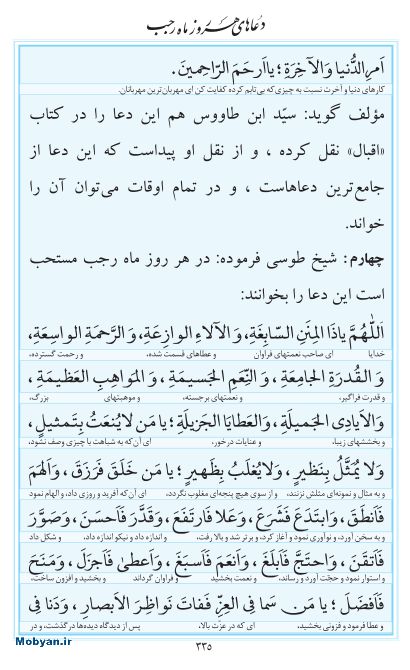 دعاهای هر روز ماه رجب
اَمرِ الدُّنیا وَالآخِرَةِ ؛ یا اَرحَمَ الرّاحِمینَ.
کارهای دنیا و آخرت نسبت به چیزی که بی‌تابم کرده کفایت کن ای مهربان‌ترین مهربانان.
مؤلف گوید: سیّد ابن طاووس هم این دعا را در کتاب
«اقبال» نقل کرده ، و از نقل او پیداست که این دعا از
جامع‌ترین دعاهاست ، و در تمام اوقات می‌توان آن را
خواند.
چهارم: شیخ طوسی فرموده: در هر روز ماه رجب مستحب
است این دعا را بخوانند:
اَللّٰهُمَّ یا ذَا المِنَنِ السّابِغَةِ، وَ الآلاءِ الوازِعَةِ، وَ الرَّحمَةِ الواسِعَةِ،
خدایا ای صاحب نعمتهای فراوان و عطاهای قسمت شده، و رحمت گسترده،
وَ القُدرَةِ الجامِعَةِ ، وَ النِّعَمِ الجَسیمَةِ ، وَ المَواهِبِ العَظیمَةِ ،
و قدرت فراگیر، و نعمتهای برجسته، و موهبتهای بزرگ،
وَ الاَیادِی الجَمیلَةِ، وَ العَطایَا الجَزیلَةِ ؛ یا مَن لا یُنعَتُ بِتَمثیلٍ ،
و بخششهای زیبا، و عنایات درخور، ای آن‌که به شباهت با چیزی وصف نشود،
وَلا یُمَثَّلُ بِنَظیرٍ ، وَلا یُغلَبُ بِظَهیرٍ ؛ یا مَن خَلَقَ فَرَزَقَ ، وَ اَلهَمَ
و به مثال و نمونه‌ای مثلش نزنند، و از سوی هیچ پنجه‌ای مغلوب نگردد، ای آن‌که آفرید و روزی داد، و الهام نمود
فَاَنطَقَ ، وَ ابتَدَعَ فَشَرَعَ ، وَعَلا فَارتَفَعَ ، وَقَدَّرَ فَاَحسَنَ ، وَ صَوَّرَ
و به سخن آورد، و نوآوری نمود و آغاز کرد، و برتر شد و بالا رفت، و اندازه داد و نیکو اندازه داد، و شکل داد
فَاَتقَنَ ، وَ احتَجَّ فَاَبلَغَ ، وَ اَنعَمَ فَاَسبَغَ ، وَ اَعطیٰ فَاَجزَلَ ، وَ مَنَحَ
و استوار نمود و حجّت آورد و رساند، و نعمت بخشید و فراوان گرداند و بخشید و افزون ساخت،
فَاَفضَلَ ؛ یا مَن سَما فِی العِزِّ فَفاتَ نَواظِرَ الاَبصارِ ، وَ دَنا فِی
و عطا فرمود و فزونی بخشید، ای که در عزت بالا، پس از دیدگاه دیده‌ها درگذشت، و در
۳۳۵
Mobyan.ir